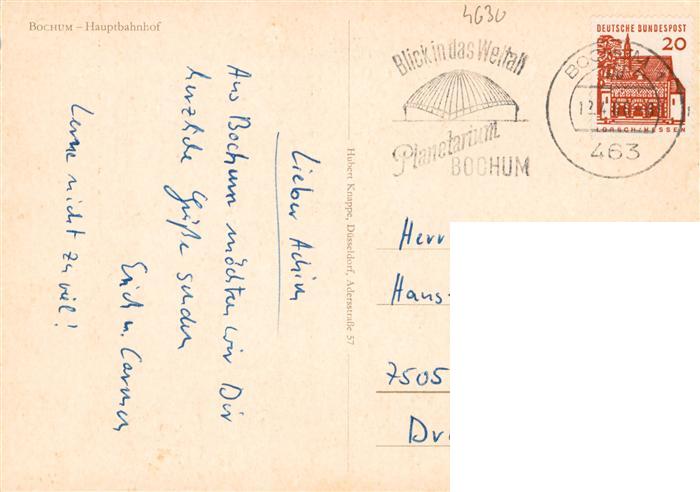 BOCHUM – Hauptbahnhof
4630
Blick in das Weltall
Planetarium
BOCHUM
DEUTSCHE BUNDESPOST
20
LORSCH/HESSEN
BOCHUM
463
Lieber Achim
Aus Bochum möchten wir Dir
herzliche Grüße senden
Erich u. Carmen
Lerne nicht zu viel!
Hubert Knappe, Düsseldorf, Adersstraße 57
Herr
Hans-
7505